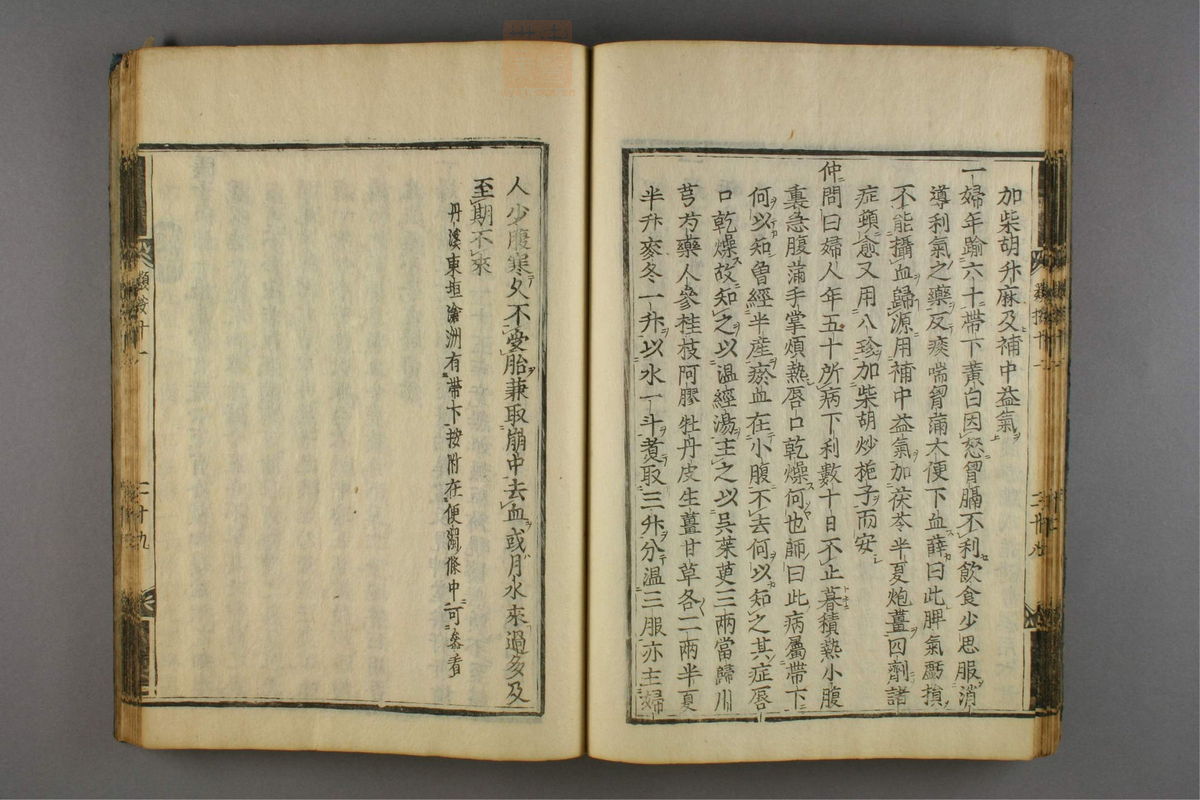 加柴胡升麻及補中益氣
一婦年踰六十帶下黄白因怒胷膈不利飲食少思服消
導利氣之藥反痰喘胷滿大便下血薛曰此脾氣虧損
不能攝血歸源用補中益氣加茯苓半夏炮薑四劑諸
症頓愈又用八珍加柴胡炒梔子而安
仲問曰婦人年五十所病下利數十日不止暮積熱小腹
裏急腹滿手掌煩熱唇口乾燥何也師曰此病屬帶下
何以知曽經半産瘀血在小腹不去何以知之其症唇
口乾燥故知之以温經湯主之以呉茱萸三兩當歸川
芎芍藥人參桂枝阿膠牡丹皮生薑甘草各二兩半夏
半升麥冬一升以水一斗煮取三升分温三服亦主婦
人少腹寒久不受胎兼取崩中去血或月水來過多及
至期不來
丹溪東垣滄洲有帶下按附在便濁條中可叅看
類按十一
二十九